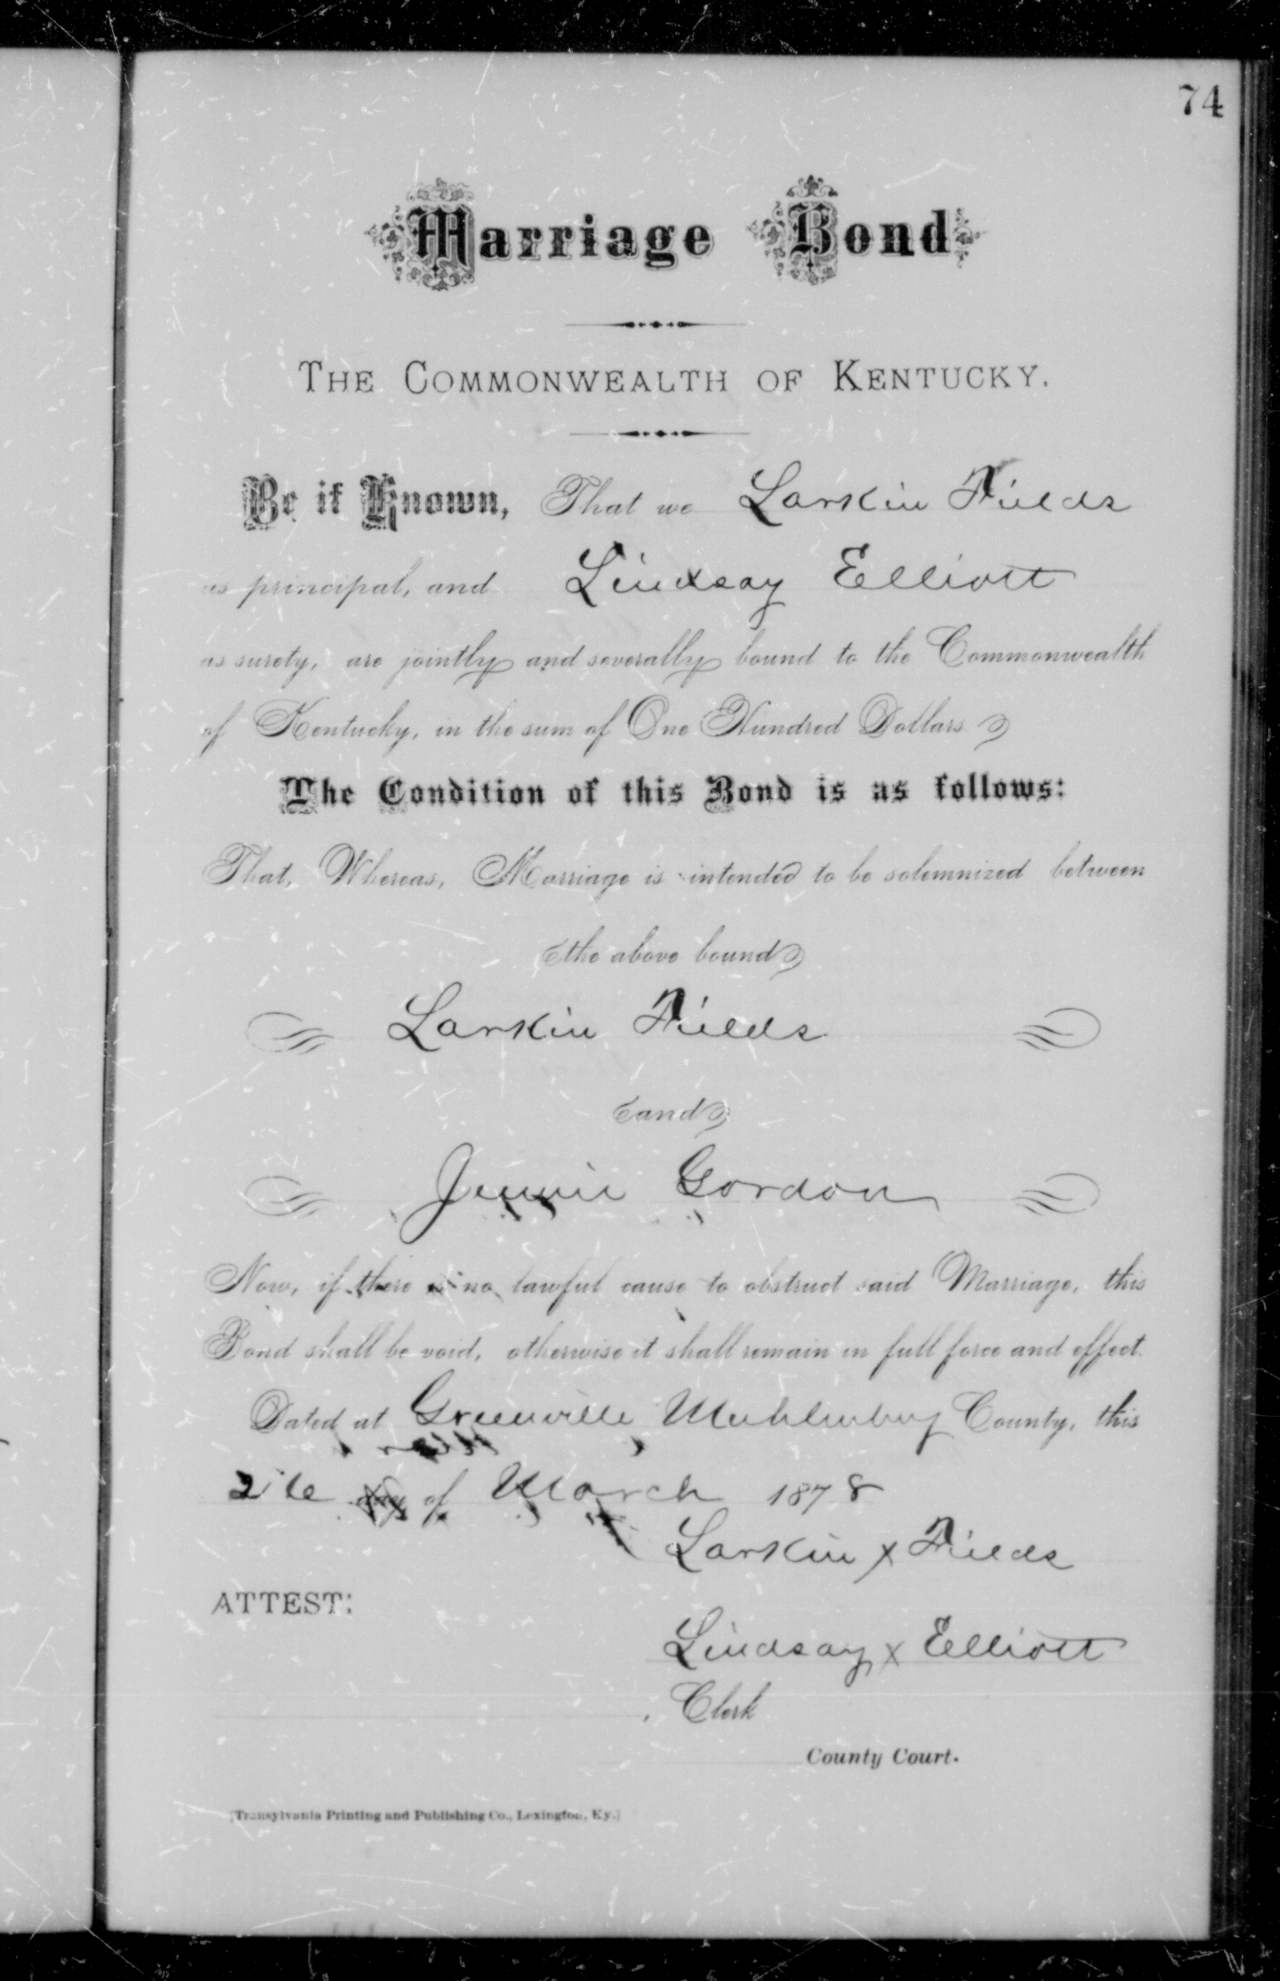 74
Marriage Bond
THE COMMONWEALTH OF KENTUCKY.
Be it Known, That we Larskin Fields
as principal, and Lindsay Elliott
as surety, are jointly and severally bound to the Commonwealth
of Kentucky, in the sum of One Hundred Dollars
The Condition of this Bond is as follows:
That, Whereas, Marriage is intended to be solemnized between
the above bound
Larskin Fields
and
Jennie Gordon
Now, if there is no lawful cause to obstruct said Marriage, this
Bond shall be void, otherwise it shall remain in full force and effect.
Dated at Greenville Muhlenburg County, this
day of March 1878
Larskin x Fields
ATTEST:
Lindsay x Elliott
, Clerk
County Court.
[Transylvania Printing and Publishing Co., Lexington, Ky.]